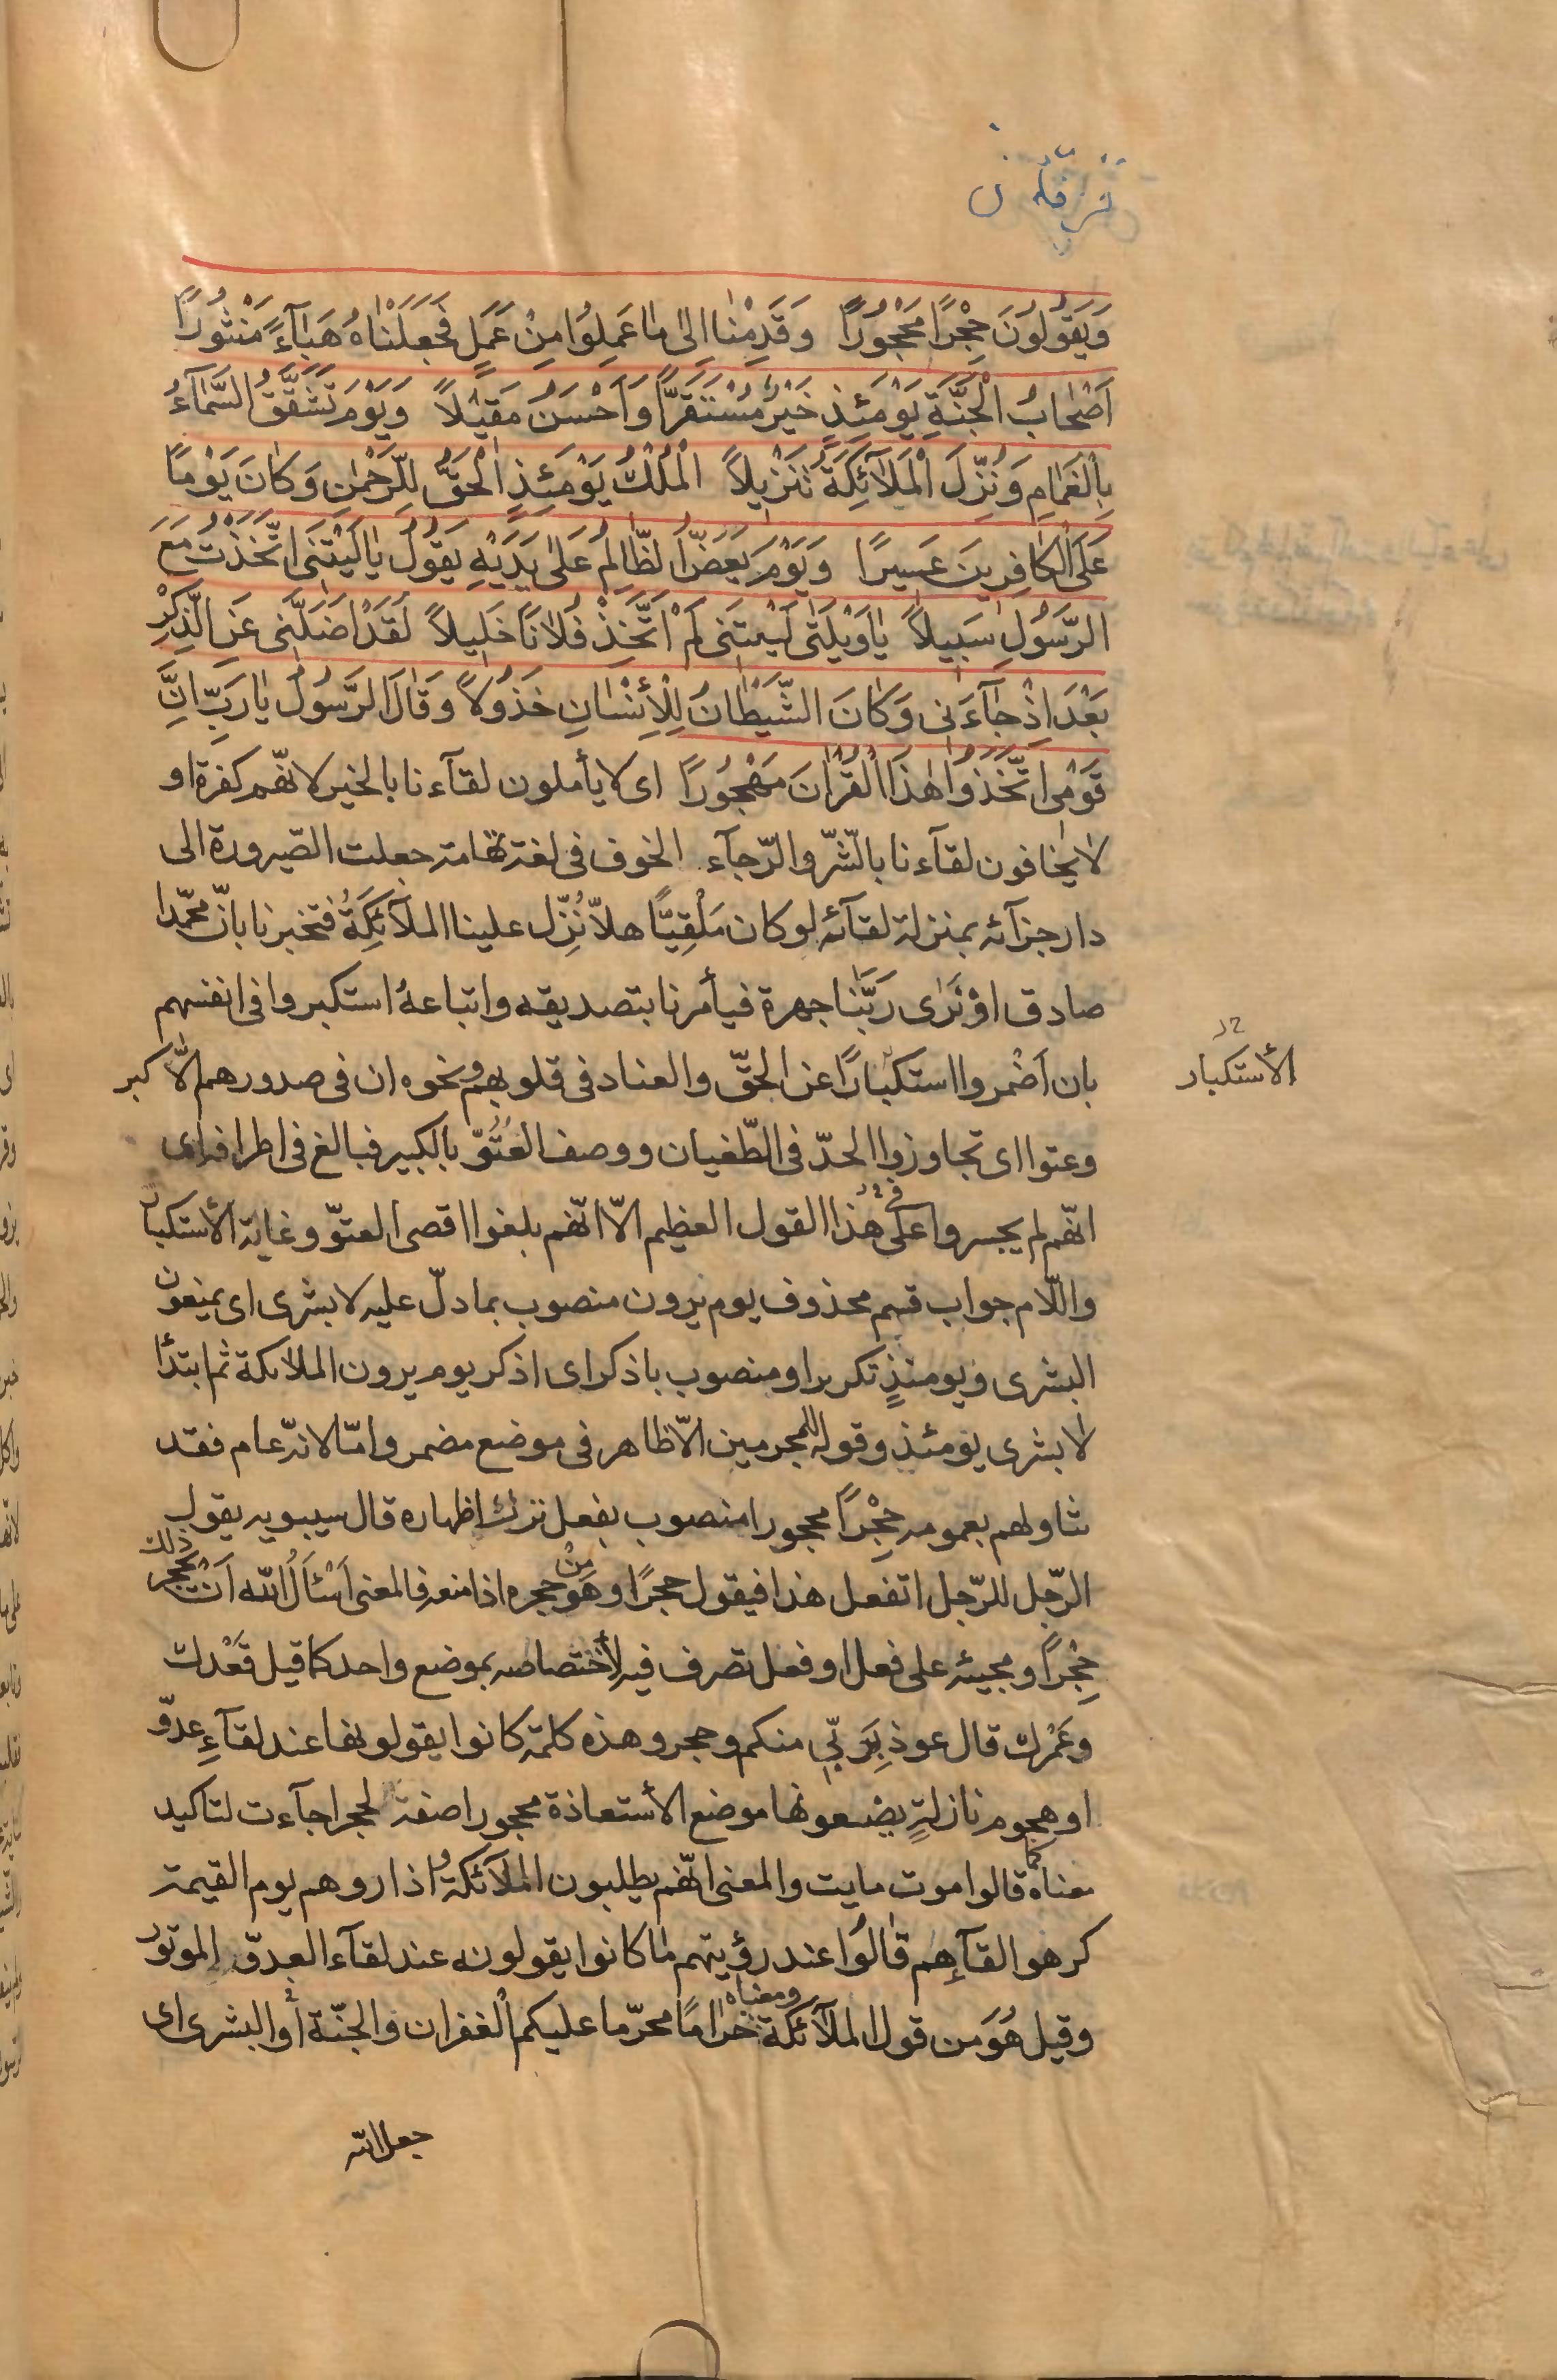 فرقان
وَيَقُولُونَ حِجْرًا مَحْجُورًا وَقَدِمْنا اِلى ما عَمِلُوا مِنْ عَمَلٍ فَجَعَلْناهُ هَبآءً مَنْثُورًا
اَصْحابُ الْجَنَّةِ يَوْمَئِذٍ خَيْرٌ مُسْتَقَرًّا وَاَحْسَنُ مَقيْلاً وَيَوْمَ تَشَقَّقُ السَّمآءُ
بِالْغَمامِ وَنُزِّلَ الْمَلآئِكَةُ تَنْزيلاً الْمُلْكُ يَوْمَئِذٍ الْحَقُّ لِلرَّحْمنِ وَكانَ يَوْمًا
عَلَى الْكافِرينَ عَسيرًا وَيَوْمَ يَعَضُّ الظّالِمُ عَلى يَدَيْهِ يَقُولُ يا لَيْتَنى اتَّخَذْتُ مَعَ
الرَّسُولِ سَبيلاً يا وَيْلَتى لَيْتَنى لَمْ اَتَّخِذْ فُلانًا خَليلاً لَقَدْ اَضَلَّنى عَنِ الذِّكْرِ
بَعْدَ اِذْ جآءَنى وَكانَ الشَّيْطانُ لِلْأِنْسانِ خَذُولاً وَقالَ الرَّسُولُ يا رَبِّ اِنَّ
قَوْمى اتَّخَذُوا هٰذَا الْقُرْانَ مَهْجُورًا اى لا يأملون لقآءنا بالخير لانّهم كفرة او
لا يخافون لقآءنا بالشّر والرّجآء الخوف فى لغة تهامة جعلت الصّيرورة الى
دار جزآئه بمنزلة لقآئه لو كان مَلْقِيًّا هلاّ نُزِّل علينا الملآئِكَةُ فتخبرنا بانّ محمّدا
صادق اوْ نَرى رَبَّنا جهرة فيأمرنا بتصديقه واتباعهُ استكبروا فى انفسهم
بان اَضْمروا استكبارًا عن الحقّ والعناد فى قلوبهم ونحوه ان فى صدورهم الاّ كبر
الأستكبار
وعتوا اى تجاوزوا الحدّ فى الطّغيان ووصف العُتُوّ بالكبير فبالغ فى اطرافه اى
انّهم لم يجسروا على هذا القول العظيم الاّ انّهم بلغوا اقصى العتوّ وغاية الأستكبار
واللّام جواب قسم محذوف يوم يرون منصوب بما دلّ عليه لا بشرى اى يمنعون
البشرى ويومئذٍ تكريرا ومنصوب باذكر اى اذكر يوم يرون الملائكة ثم ابتدأ
لا بشرى يومئذ وقوله للمجرمين الاّ ظاهر فى موضع مضمر وامّا لانّه عام فقد
تناولهم بعمومه حِجْرًا محجورا منصوب بفعل ترك اظهاره قال سيبويه يقول
الرّجل للرّجل اتفعل هذا فيقول حجرًا وهَو مِنْ حجره اذا منعه فالمعنى اَسْئَلُ الله اَنْ يحجر ذلك
حِجْرًا ومجيئه على فعل او فعل تصرف فيه لأختصاصه بموضع واحد كما قيل قَعْدك
وعَمْرك قال عوذ بِرَبّى منكم وحجر وهذه كلمة كانوا يقولونها عند لقآءِ عدوّ
او هجوم نازلةٍ يضعونها موضع الأستعاذة محجورا صفة لحجرا جآءت لتاكيد
معناه كما قالوا موت مايت والمعنى انّهم يطلبون الملآئكة واذا روهم يوم القيمة
كرهوا لقآءِهم قالُوا عند رؤيتهم ما كانوا يقولونه عند لقآء العدوّ الموتور
وقيل هُوَ من قول الملآئكة ومعناه حرامًا محرّما عليكم الْغفران والجنّة أو البشرى اى
جعل الله